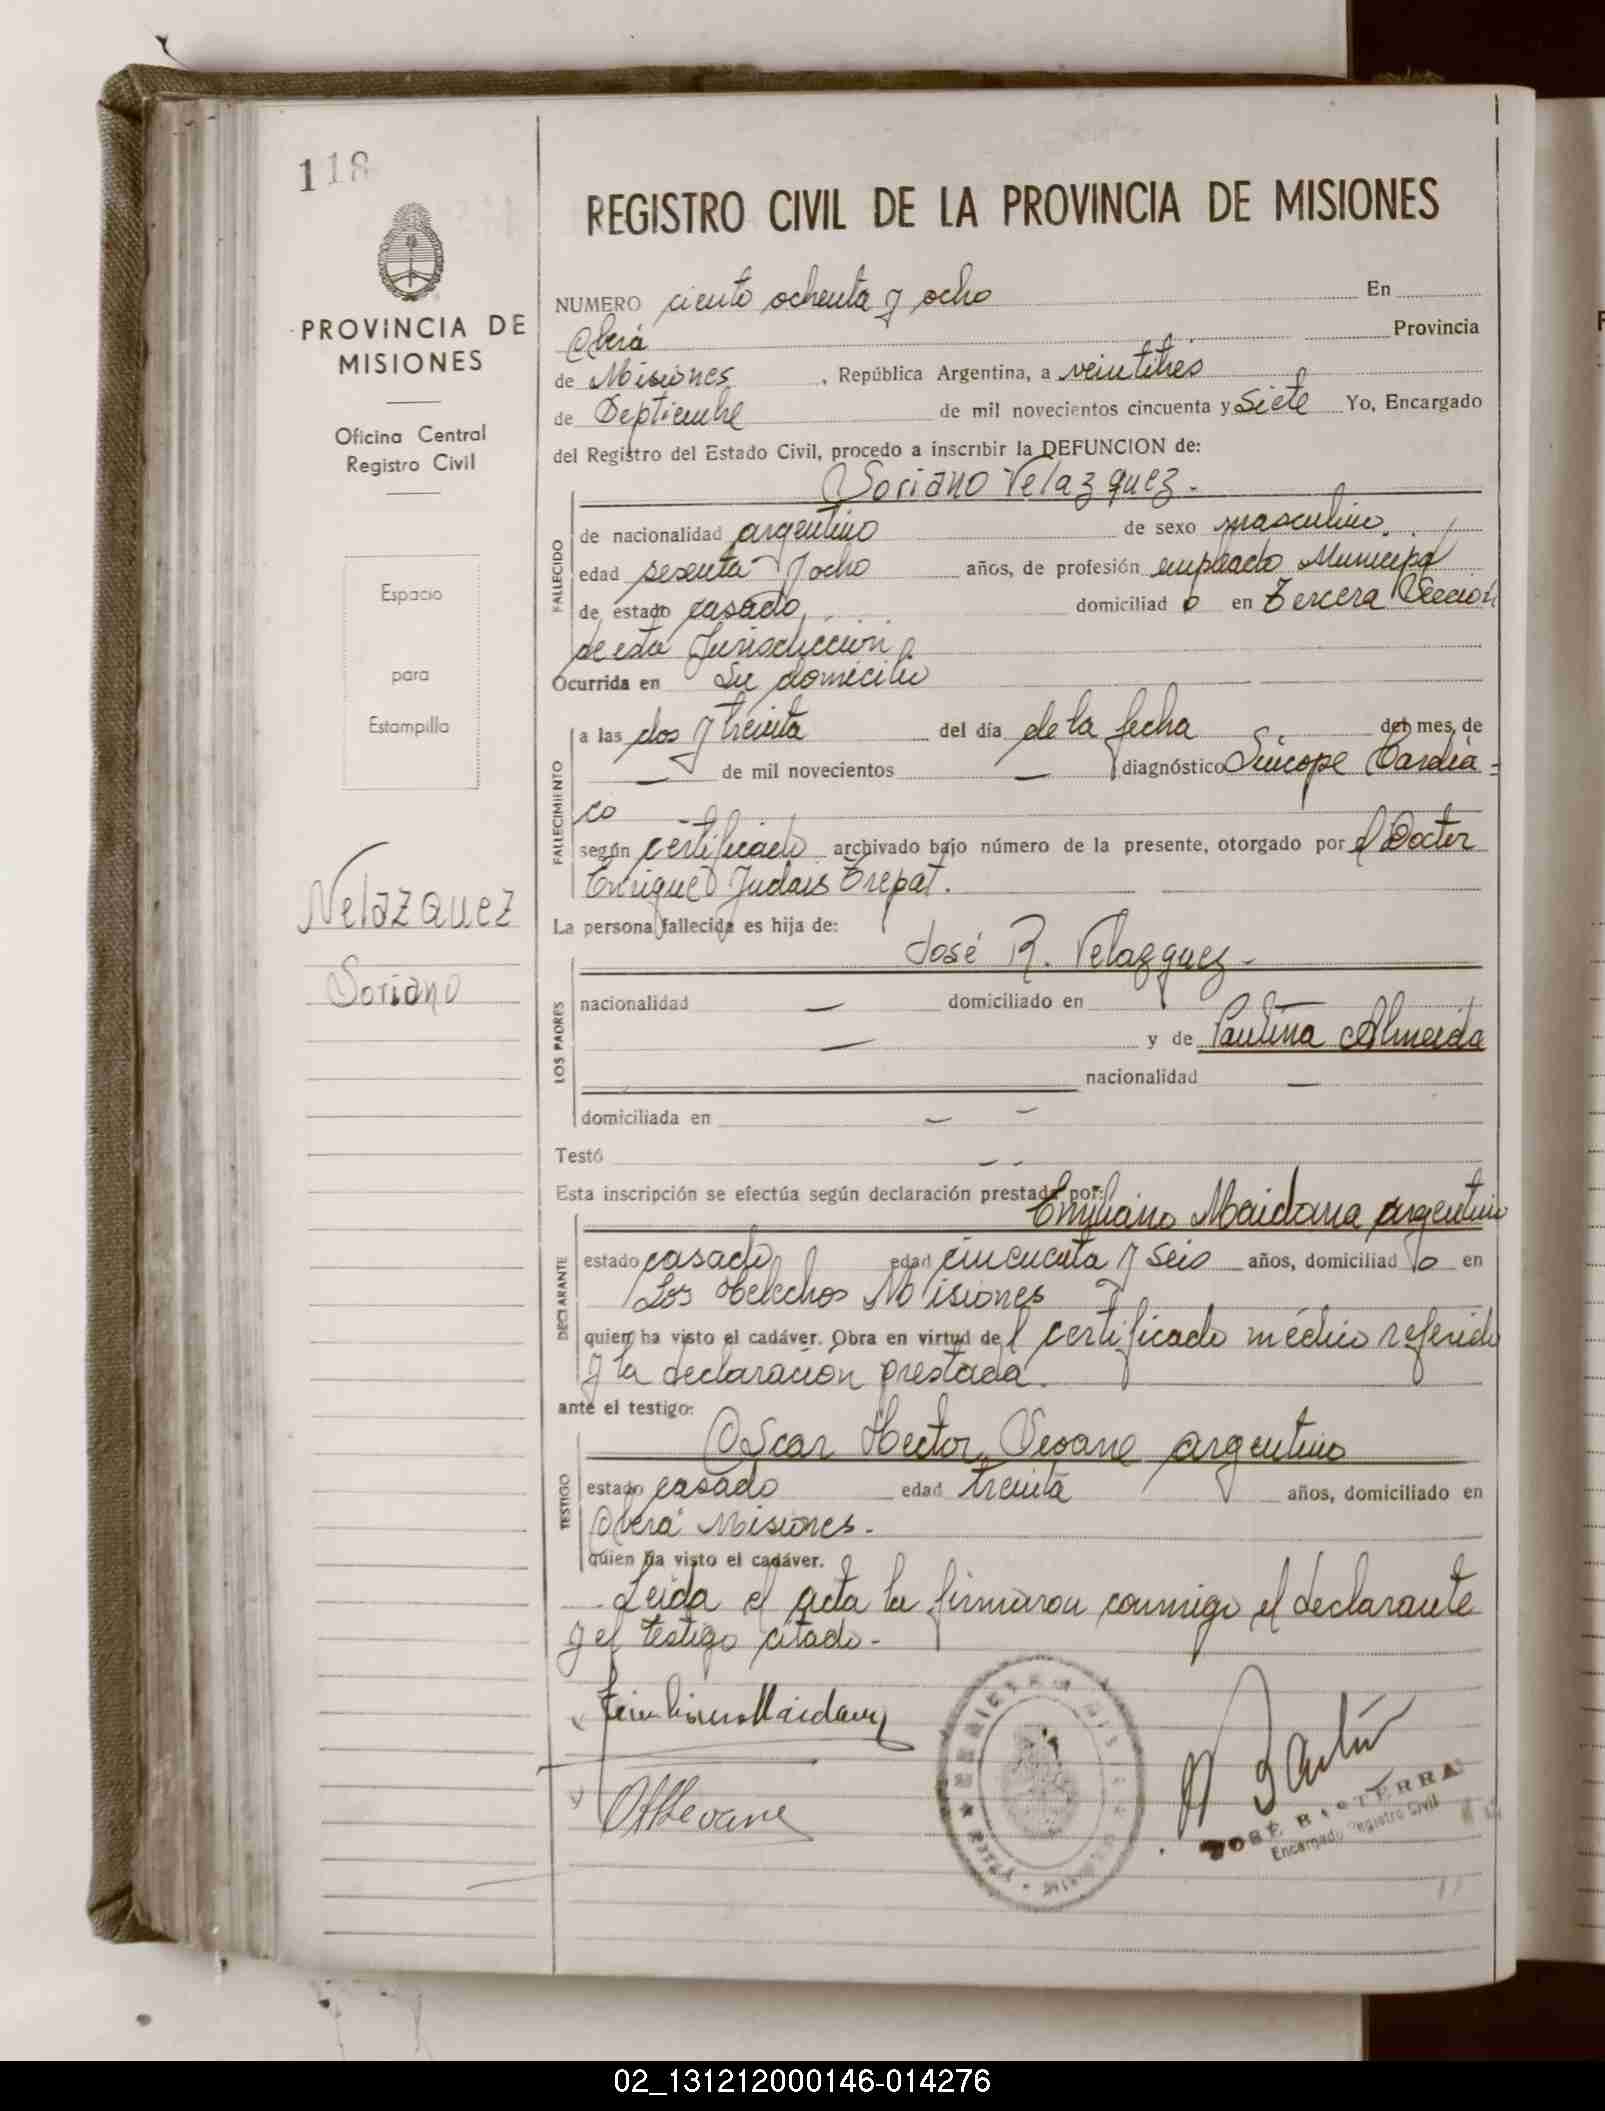 118
PROVINCIA DE
MISIONES
Oficina Central
Registro Civil
Espacio
para
Estampilla
Velazquez
Soriano
REGISTRO CIVIL DE LA PROVINCIA DE MISIONES
NUMERO ciento ochenta y ocho En
Oberá Provincia
de Misiones, República Argentina, a veintitrés
de Septiembre de mil novecientos cincuenta y siete Yo, Encargado
del Registro del Estado Civil, procedo a inscribir la DEFUNCION de:
Soriano Velazquez.-
FALLECIDO
de nacionalidad argentino de sexo masculino
edad sesenta y ocho años, de profesión empleado Municipal
de estado casado domiciliad o en Tercera Sección
de esta Jurisdicción
Ocurrida en Su domicilio
FALLECIMIENTO
a las dos y treinta del día de la fecha del mes de
— de mil novecientos — diagnóstico Síncope Cardía=
co
según certificado archivado bajo número de la presente, otorgado por el Doctor
Enrique Judais Trepat.
La persona fallecida es hija de:
José R. Velazquez-
LOS PADRES
nacionalidad — domiciliado en
— y de Paulina Almeida
nacionalidad —
domiciliada en — —
Testó — -
Esta inscripción se efectúa según declaración prestada por:
Emiliano Maidana argentino
DECLARANTE
estado casado edad cincuenta y seis años, domiciliad o en
Los Helechos Misiones
quien ha visto el cadáver. Obra en virtud del certificado médico referido
y la declaración prestada.
ante el testigo:
Oscar Hector Seoane argentino
TESTIGO
estado casado edad treinta años, domiciliado en
Oberá Misiones.-
quien ha visto el cadáver.
Leída el acta la firmaron conmigo el declarante
y el testigo citado.-
Emiliano Maidana
OHSeoane
JOSÉ BISTERRA
Encargado Registro Civil
02_131212000146-014276